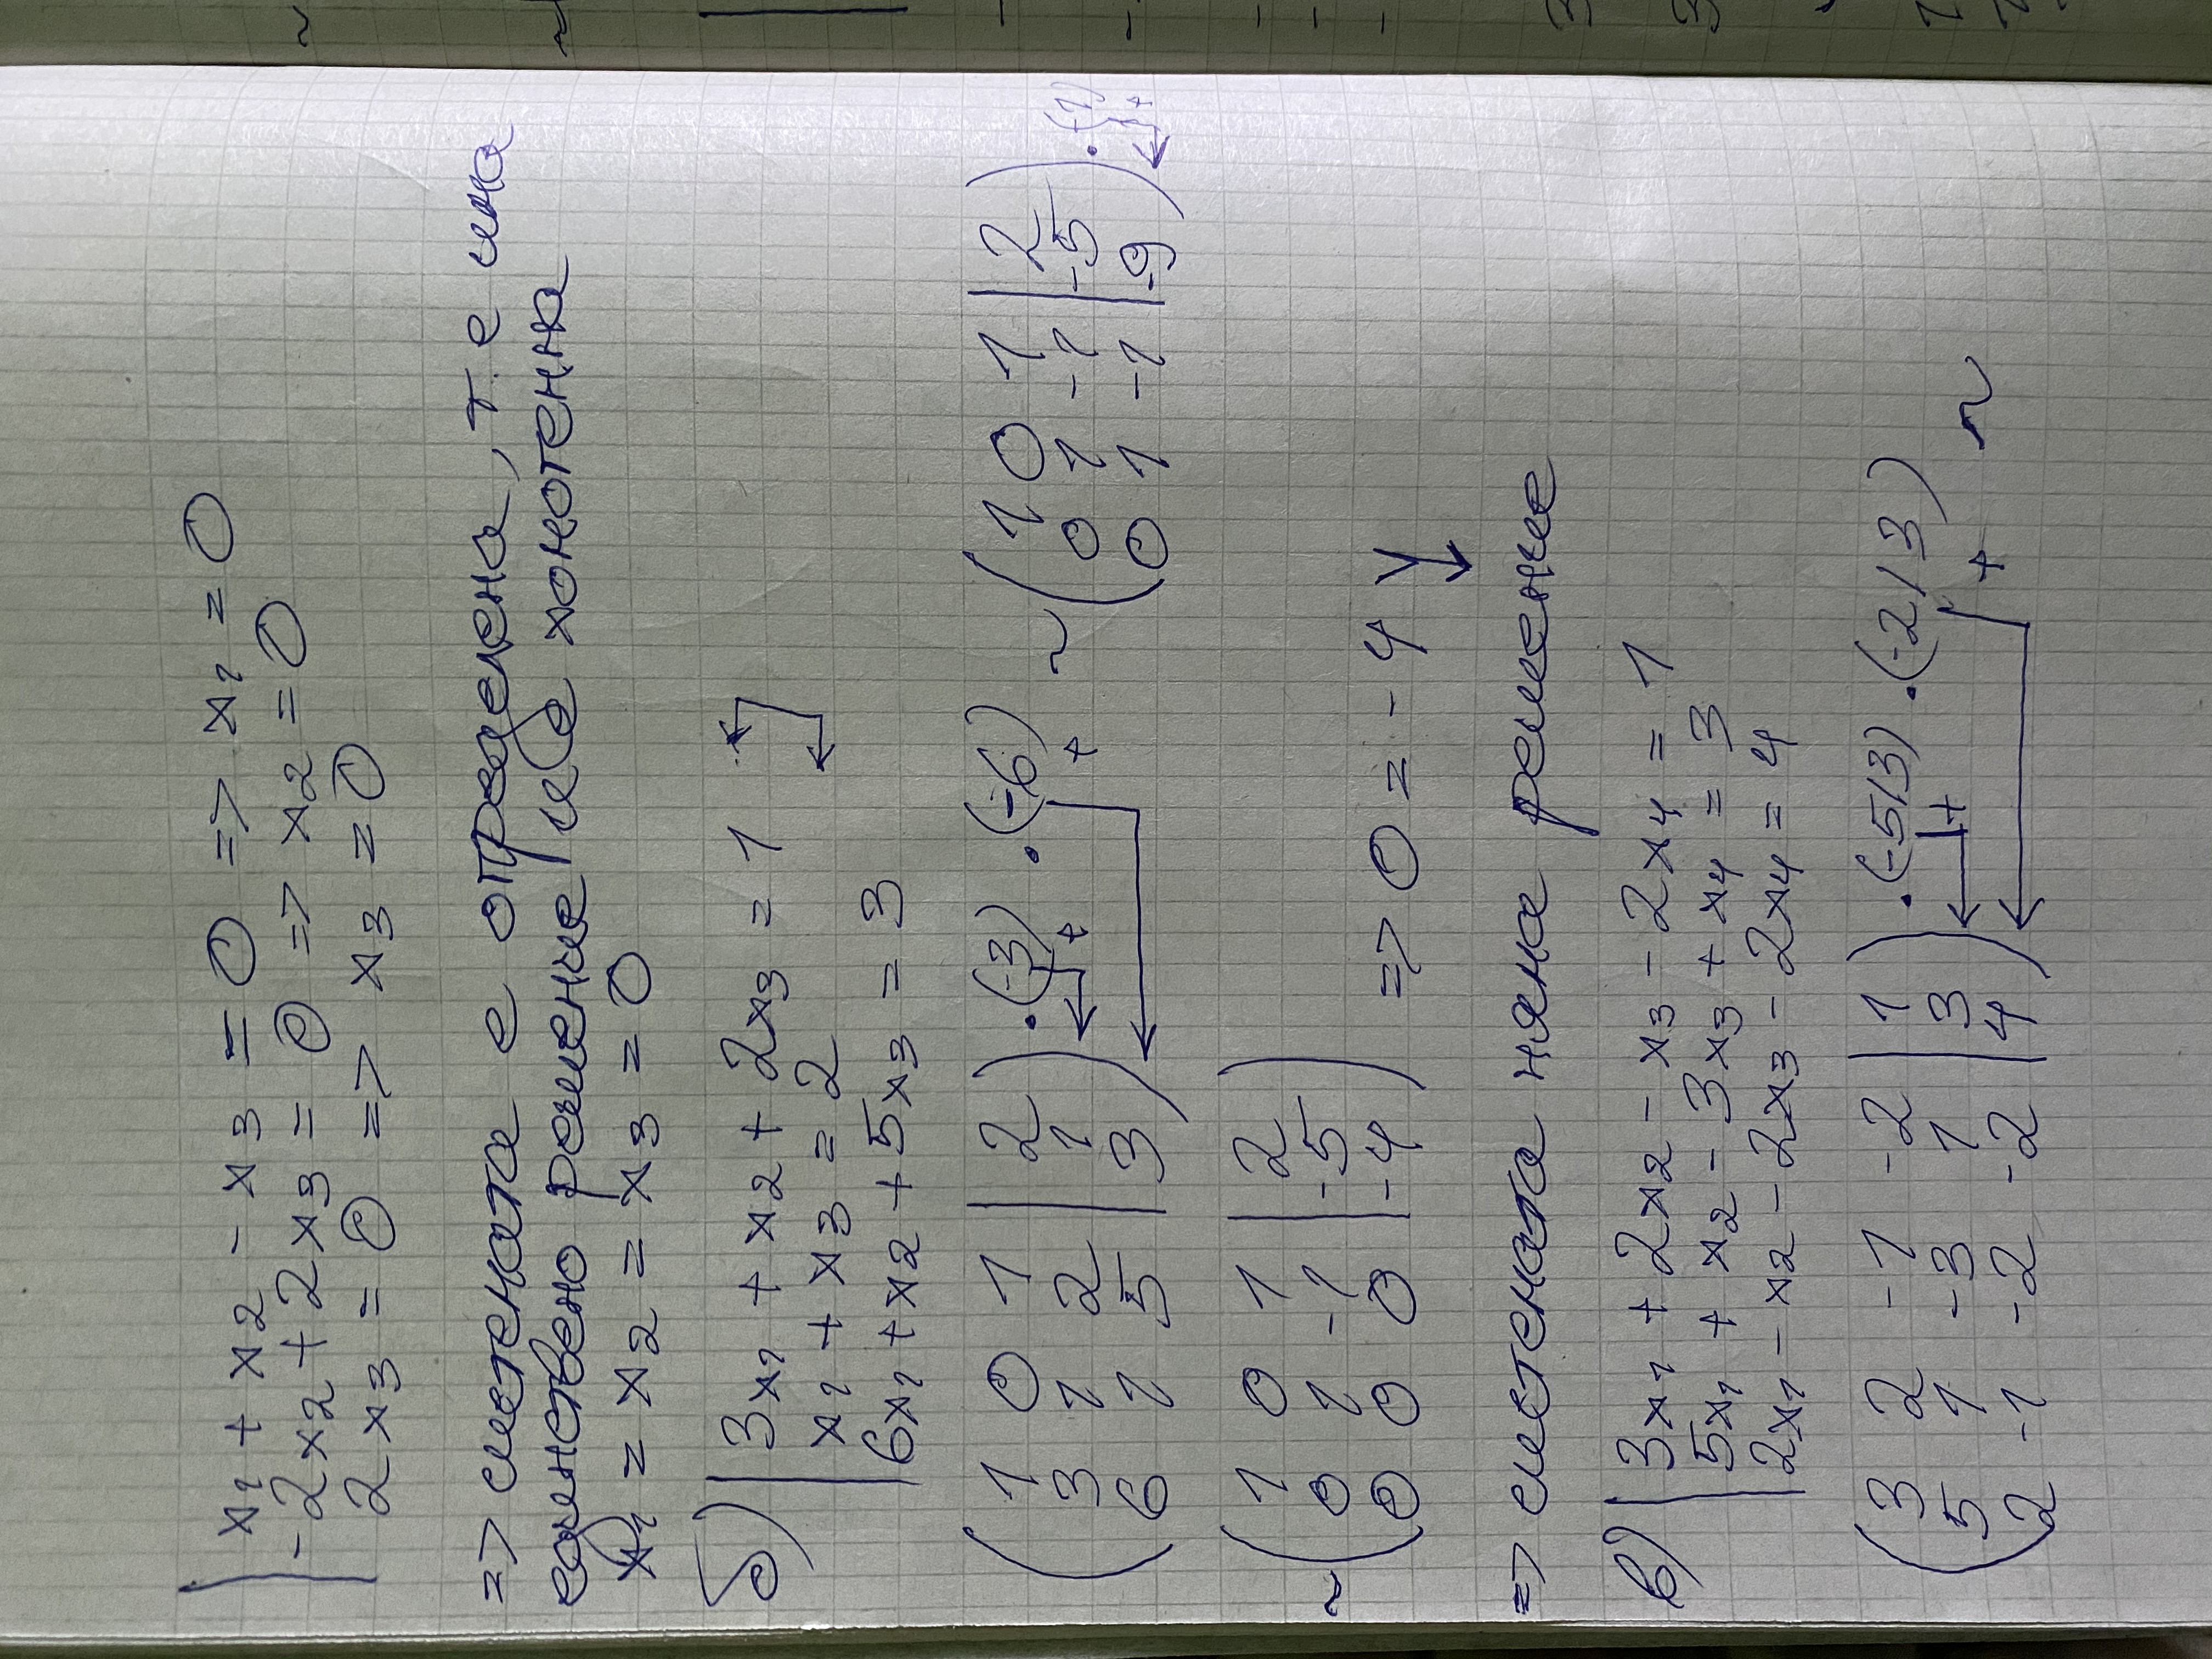 x₁ + x₂ - x₃ = 0 => x₁ = 0
-2x₂ + 2x₃ = 0 => x₂ = 0
2x₃ = 0 => x₃ = 0
=> системата е определена, т.е има
единствено решение и е хомогенна
x₁ = x₂ = x₃ = 0
б) 3x₁ + x₂ + 2x₃ = 1
x₁ + x₃ = 2
6x₁ + x₂ + 5x₃ = 3
( 1 0 1 | 2 ) .(-3) .(-6) ~ ( 1 0 1 | 2 )
( 3 1 2 | 1 ) ← + + ( 0 1 -1 | -5 ) .(-1)
( 6 1 5 | 3 ) ← ( 0 1 -1 | -9 ) ← +
( 1 0 1 | 2 )
~ ( 0 1 -1 | -5 )
( 0 0 0 | -4 ) => 0 = -4
=> системата няма решение
в) 3x₁ + 2x₂ - x₃ - 2x₄ = 1
5x₁ + x₂ - 3x₃ + x₄ = 3
2x₁ - x₂ - 2x₃ - 2x₄ = 4
( 3 2 -1 -2 | 1 ) .(-5/3) .(-2/3)
( 5 1 -3 1 | 3 ) ← + + ~
( 2 -1 -2 -2 | 4 ) ←